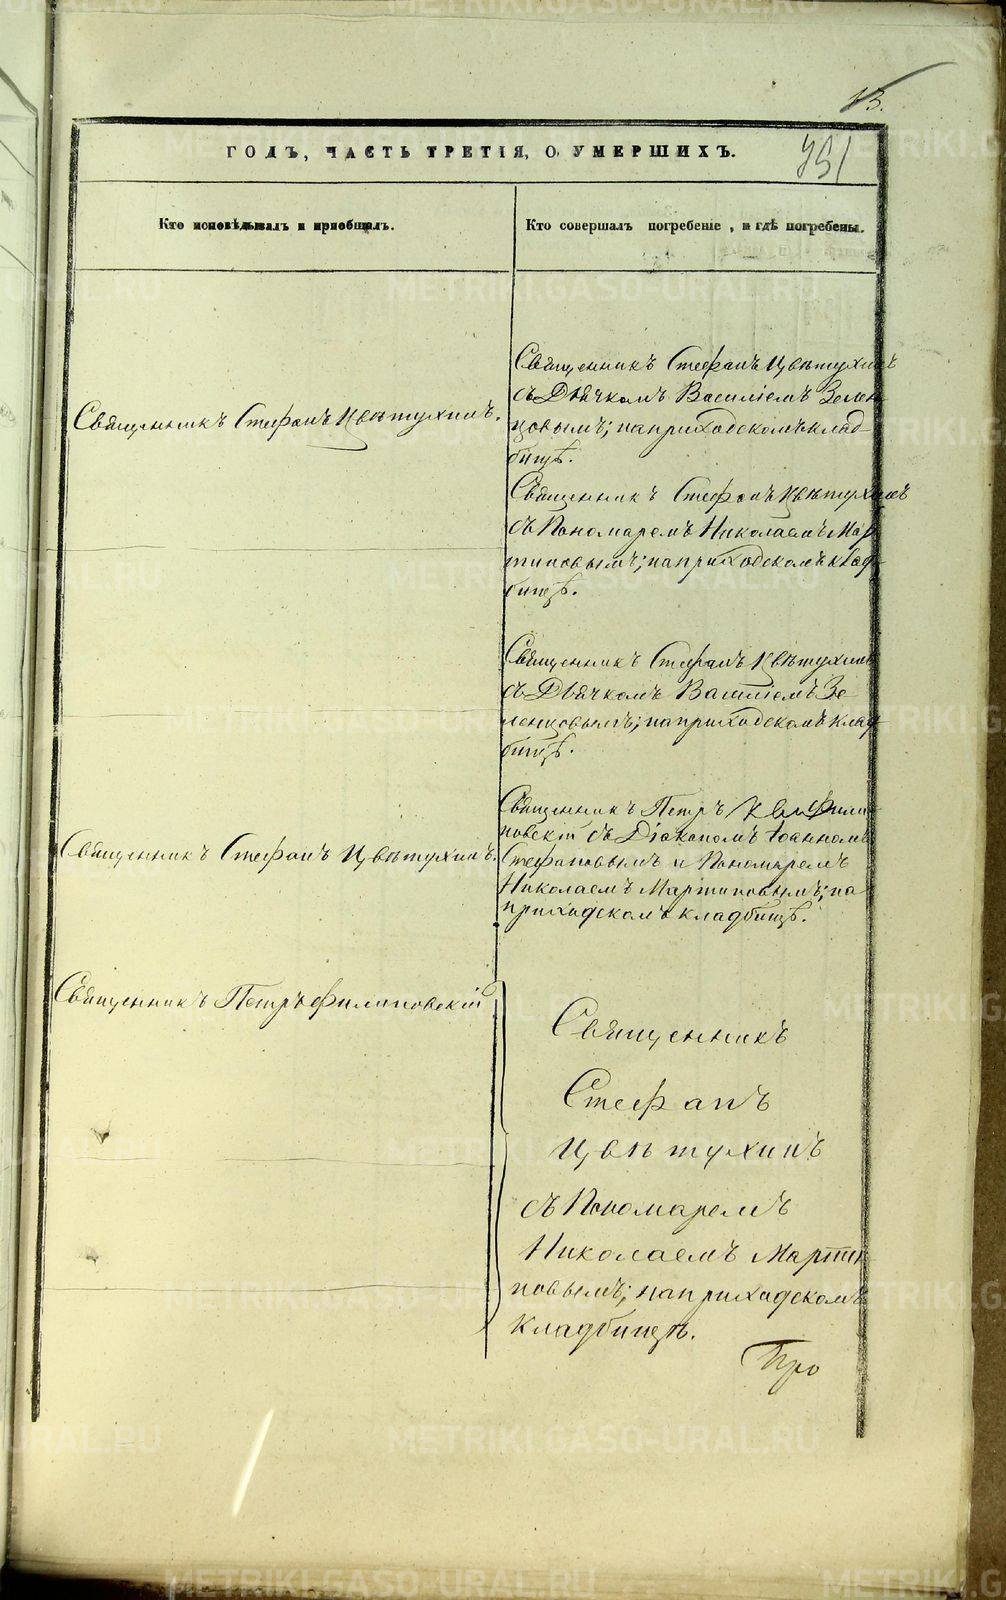 13.
751
ГОДЪ, ЧАСТЬ ТРЕТІЯ, О УМЕРШИХЪ.
Кто исповѣдывалъ и пріобщалъ.
Кто совершалъ погребеніе, и гдѣ погребены.
Священникъ Стефанъ Цвѣтухинъ.
Священникъ Стефанъ Цвѣтухинъ
съ Дьячкомъ Василіемъ Зелен
цовымъ; на приходскомъ клад-
бищѣ.
Священникъ Стефанъ Цвѣтухинъ
съ Пономаремъ Николаемъ Мар
тиновымъ; на приходскомъ клад-
бищѣ.
Священникъ Стефанъ Цвѣтухинъ
съ Дьячкомъ Василіемъ Зе
ленцовымъ; на приходскомъ клад-
бищѣ.
Священникъ Стефанъ Цвѣтухинъ.
Священникъ Петръ Фили-
повскій съ Діакономъ Іоанномъ
Стефановымъ и Пономаремъ
Николаемъ Мартиновымъ; на
приходскомъ кладбищѣ.
Священникъ Петръ Филиповскій
Священникъ
Стефанъ
Цвѣтухинъ
съ Пономаремъ
Николаемъ Марти
новымъ; на приходскомъ
кладбищѣ.
Про
METRIKI.GASO-URAL.RU